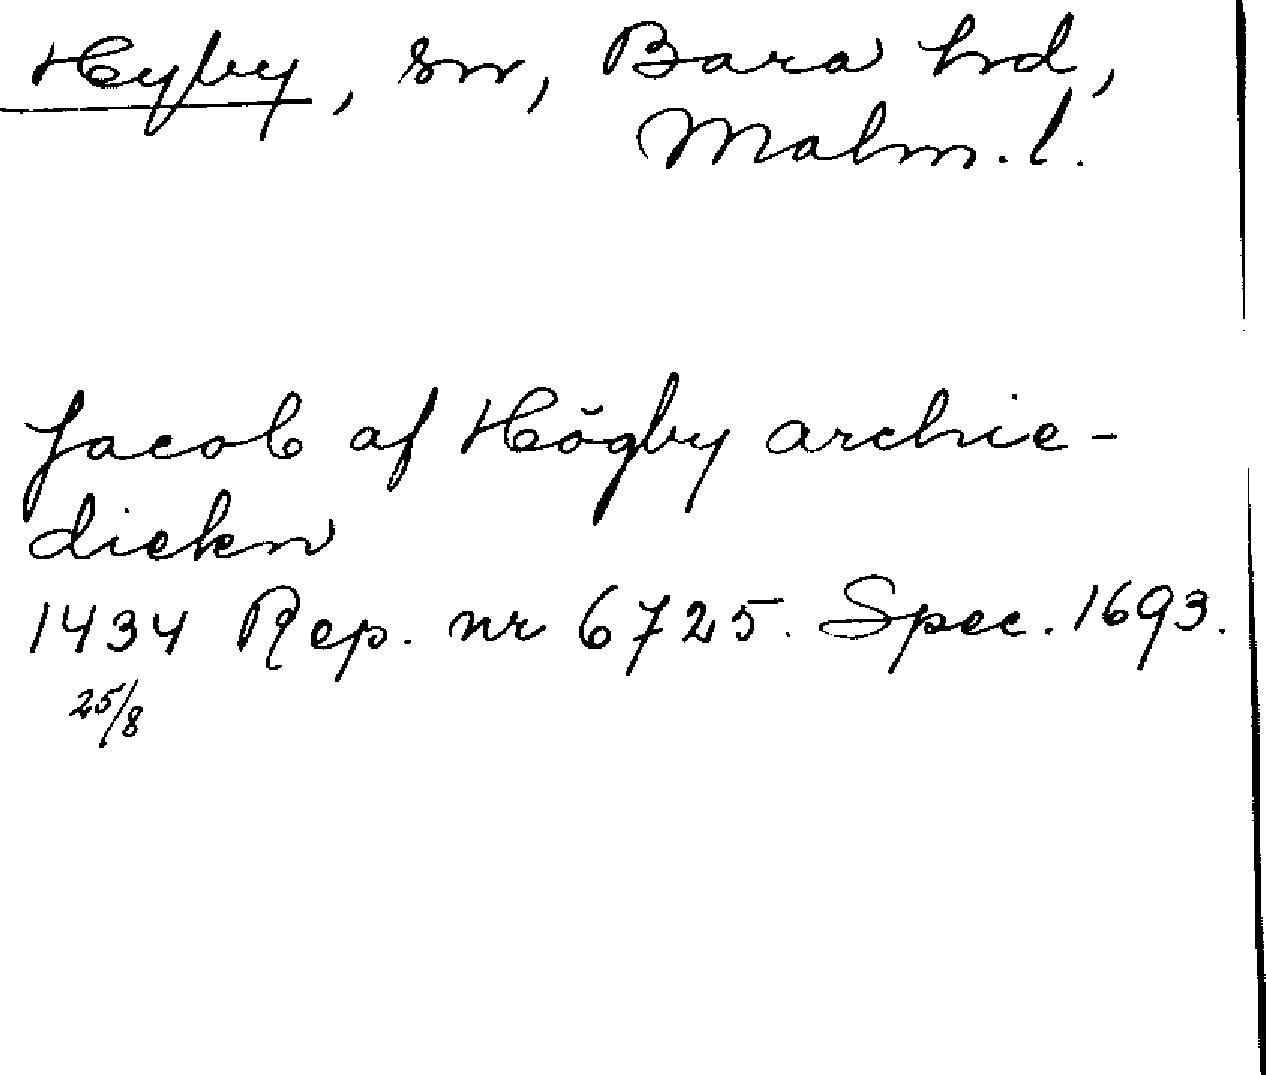 Hyby, sn, Bara hd,
Malm. l.
Jacob af Hŏgby archie-
diekn
1434 Rep. nr 6725. Spec. 1693.
25/8